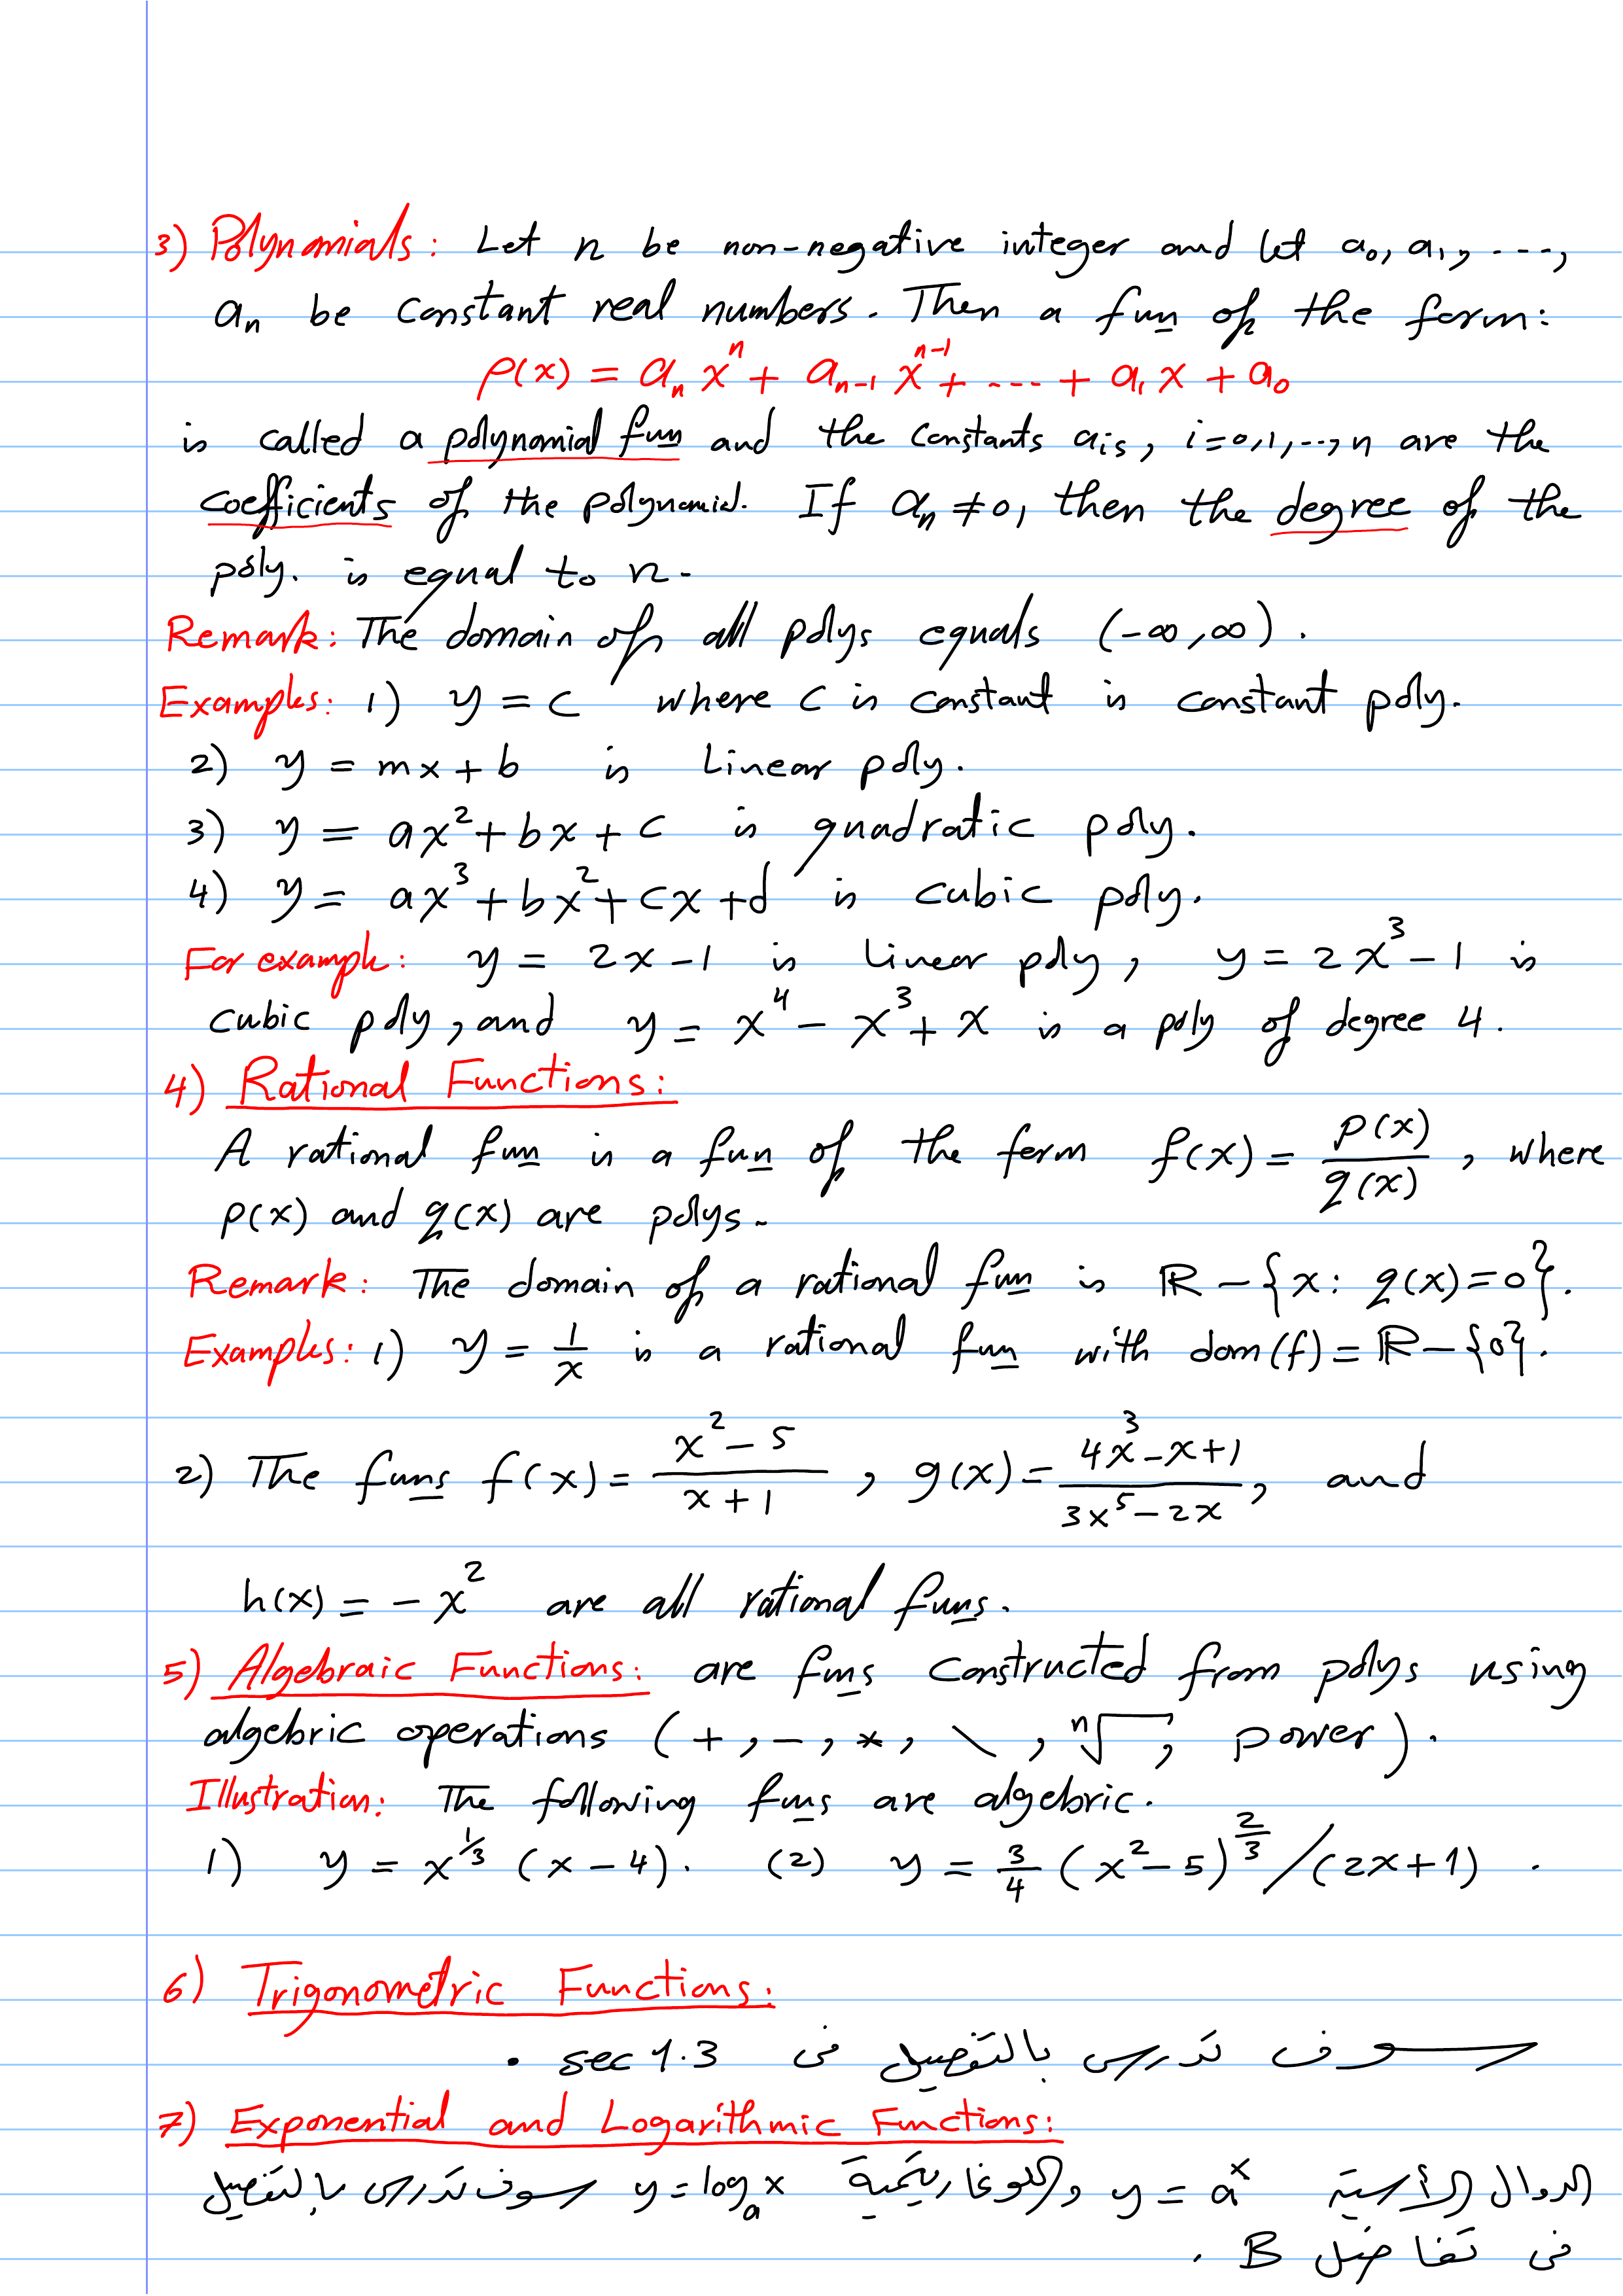 3) Polynomials: Let n be non-negative integer and let a₀, a₁, ---,
aₙ be constant real numbers. Then a fun of the form:
P(x) = aₙ xⁿ + aₙ₋₁ xⁿ⁻¹ + ---- + a₁ x + a₀
is called a polynomial fun and the constants aᵢs, i=0,1,..,n are the
coefficients of the polynomial. If aₙ ≠ 0, then the degree of the
poly. is equal to n.
Remark: The domain of all polys equals (-∞,∞).
Examples: 1) y = c where c is constant is constant poly.
2) y = mx + b is Linear poly.
3) y = ax² + bx + c is quadratic poly.
4) y = ax³ + bx² + cx + d is cubic poly.
For example: y = 2x - 1 is Linear poly, y = 2x³ - 1 is
cubic poly, and y = x⁴ - x³ + x is a poly of degree 4.
4) Rational Functions:
A rational fun is a fun of the form f(x) = p(x)/q(x), where
p(x) and q(x) are polys.
Remark: The domain of a rational fun is ℝ - {x: q(x)=0}.
Examples: 1) y = 1/x is a rational fun with dom(f) = ℝ - {0}.
2) The funs f(x) = (x² - 5)/(x + 1), g(x) = (4x³ - x + 1)/(3x⁵ - 2x), and
h(x) = - x² are all rational funs.
5) Algebraic Functions: are funs constructed from polys using
algebric operations (+, -, *, \, ⁿ√, power).
Illustration: The following funs are algebric.
1) y = x^(1/3) (x - 4). (2) y = 3/4 (x² - 5)^(2/3) / (2x + 1).
6) Trigonometric Functions:
سوف تدرس بالتفصيل في sec 1.3 .
7) Exponential and Logarithmic Functions:
الدوال الأسية y = aˣ واللوغاريتمية y = logₐ x سوف تدرس بالتفصيل
في تفاضل B .